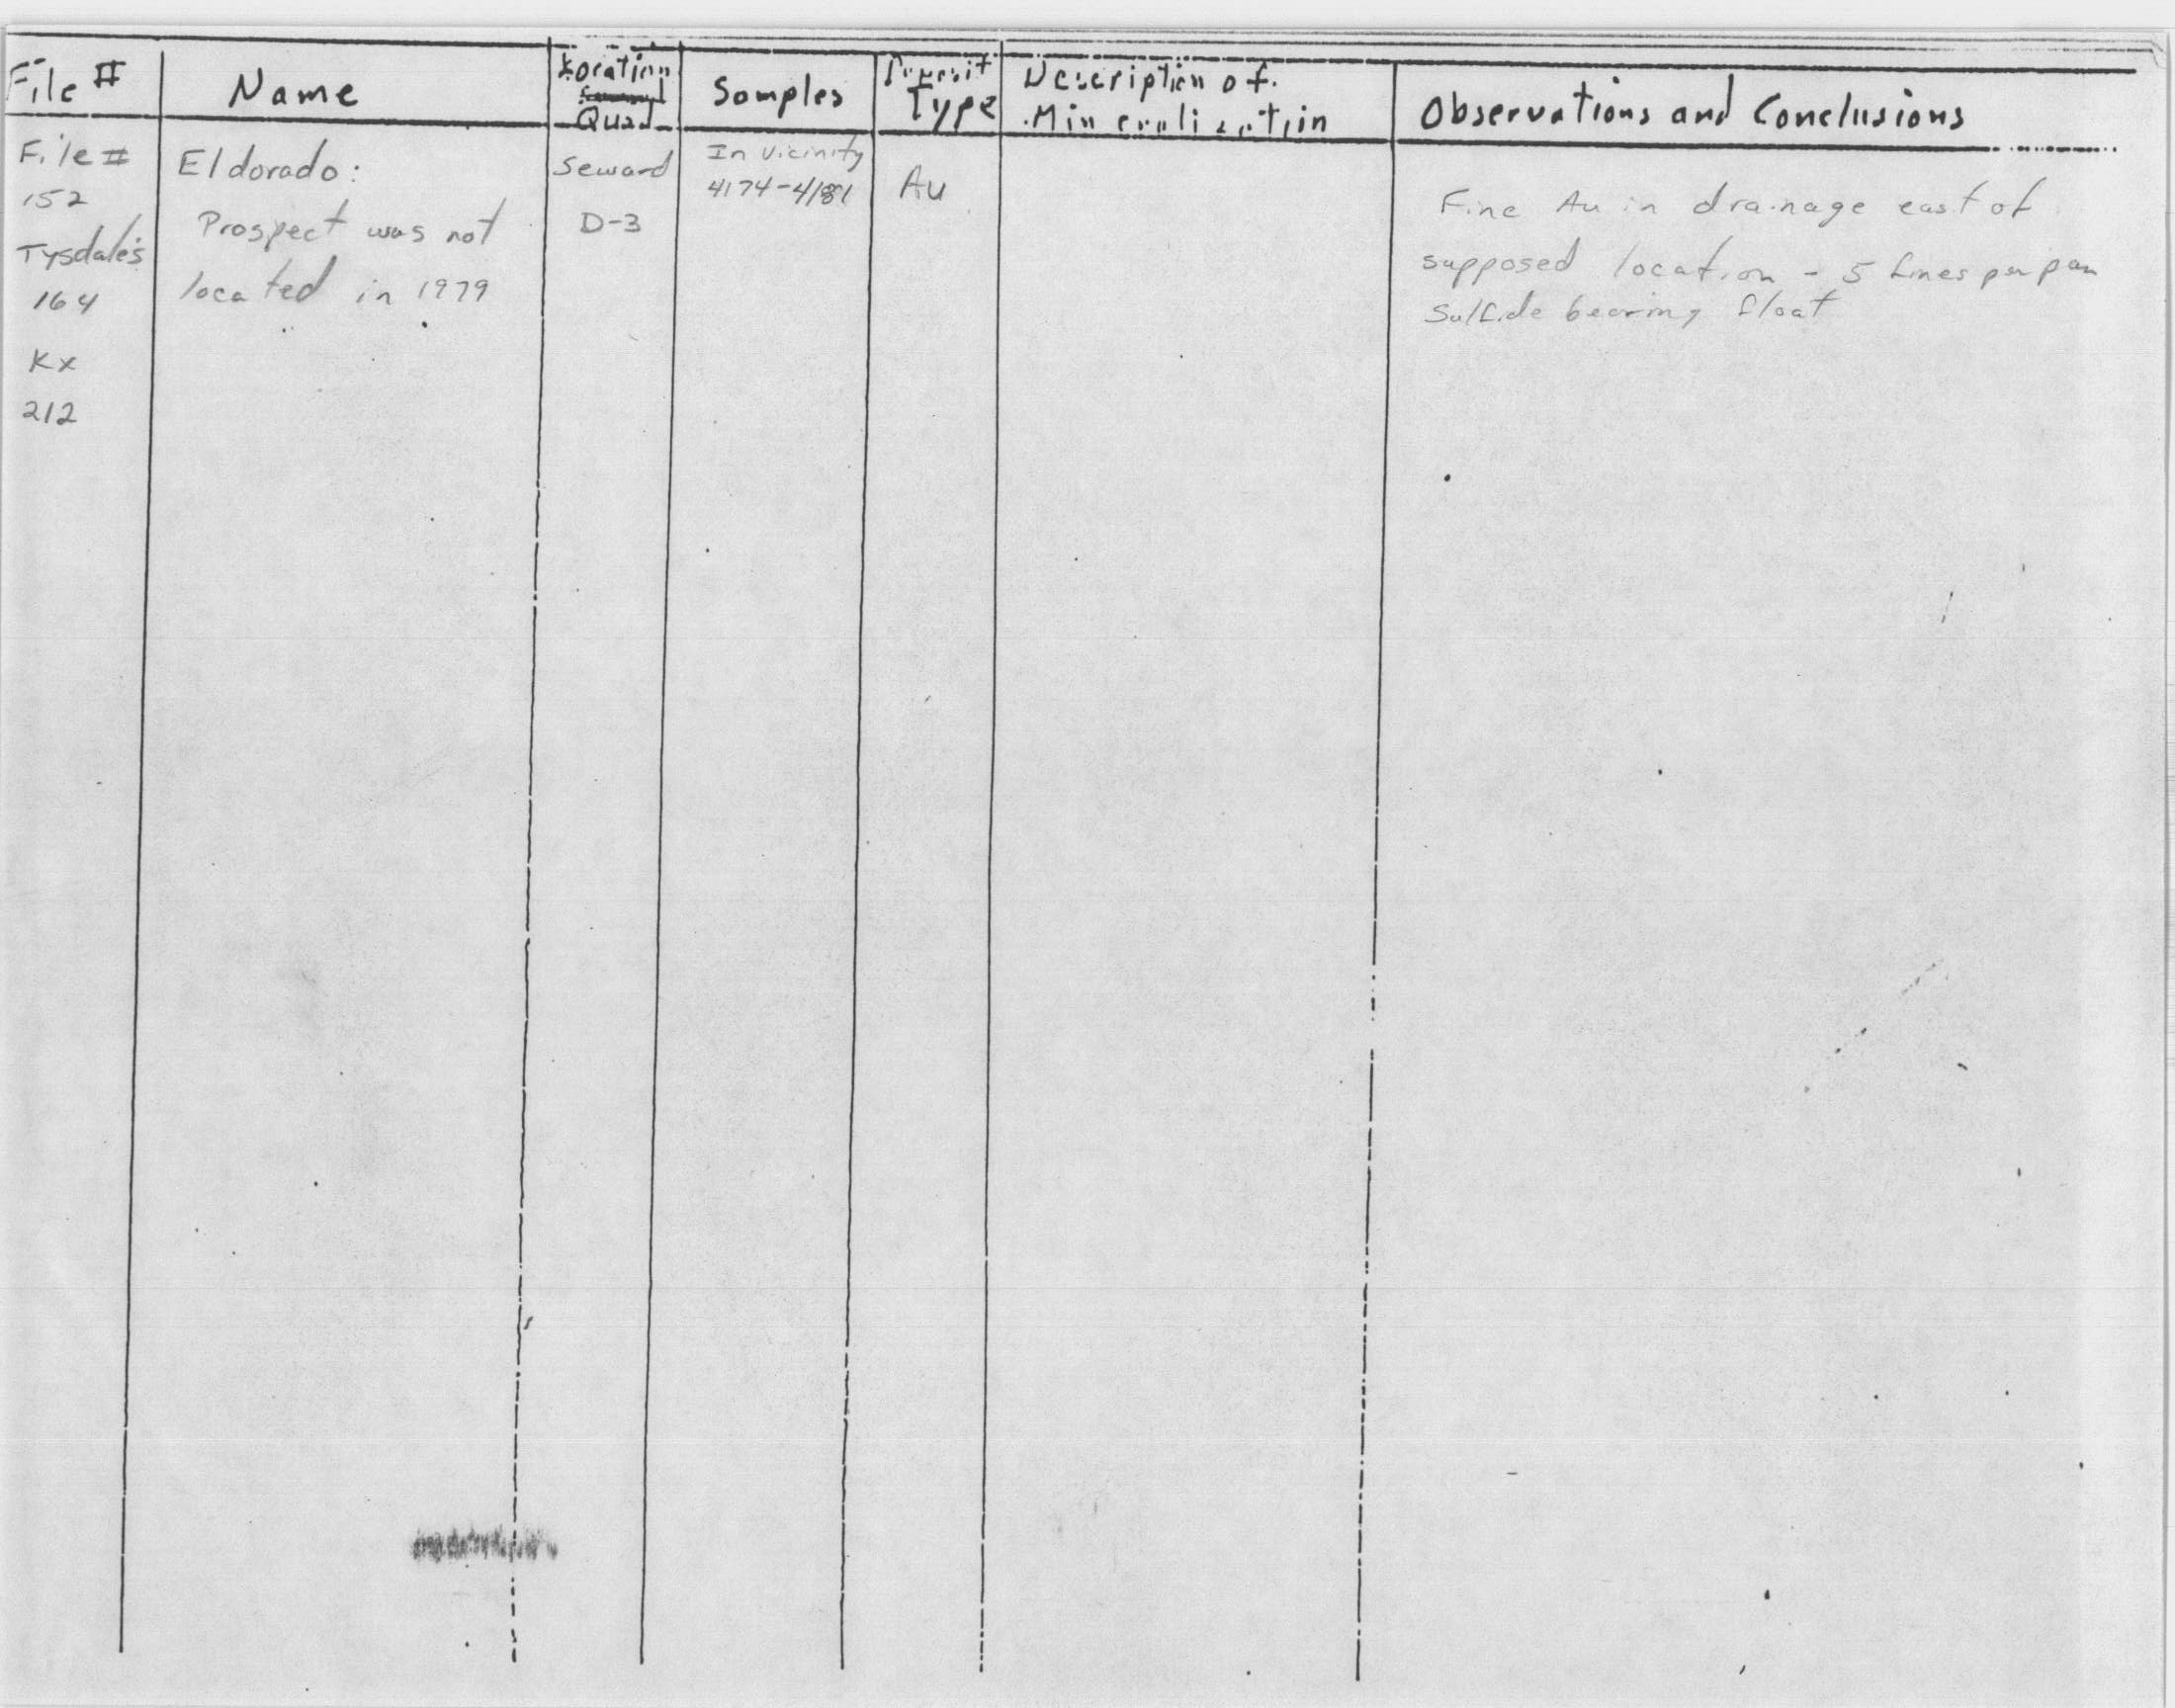 File #
Name
Location
Quad
Samples
Deposit
Type
Description of
Mineralization
Observations and Conclusions
File #
152
Tysdale's
164
Kx
212
Eldorado:
Prospect was not
located in 1979
Seward
D-3
In Vicinity
4174-4181
Au
Fine Au in drainage east of
supposed location - 5 fines per pan
Sulfide bearing float